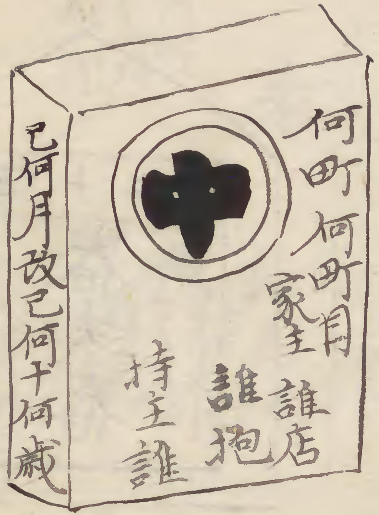 何町何町目
家主誰店
誰抱
持主誰
巳何月改巳何十何歳